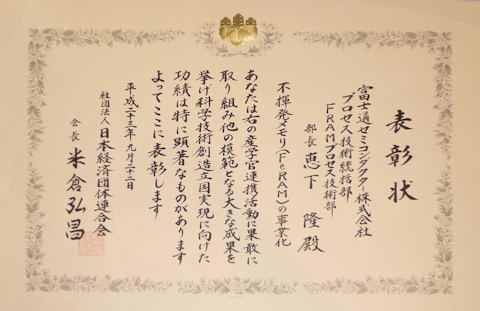 表彰状
富士通セミコンダクター株式会社
プロセス技術統括部
FRAMプロセス技術部
部長 恵下 隆殿
不揮発メモリ(FeRAM)の事業化
あなたは右の産学官連携活動に果敢に
取り組み他の模範となる大きな成果を
挙げ科学技術創造立国実現に向けた
功績は特に顕著なものがあります
よってここに表彰します
平成二十三年九月二十二日
社団法人 日本経済団体連合会
会長 米倉弘昌